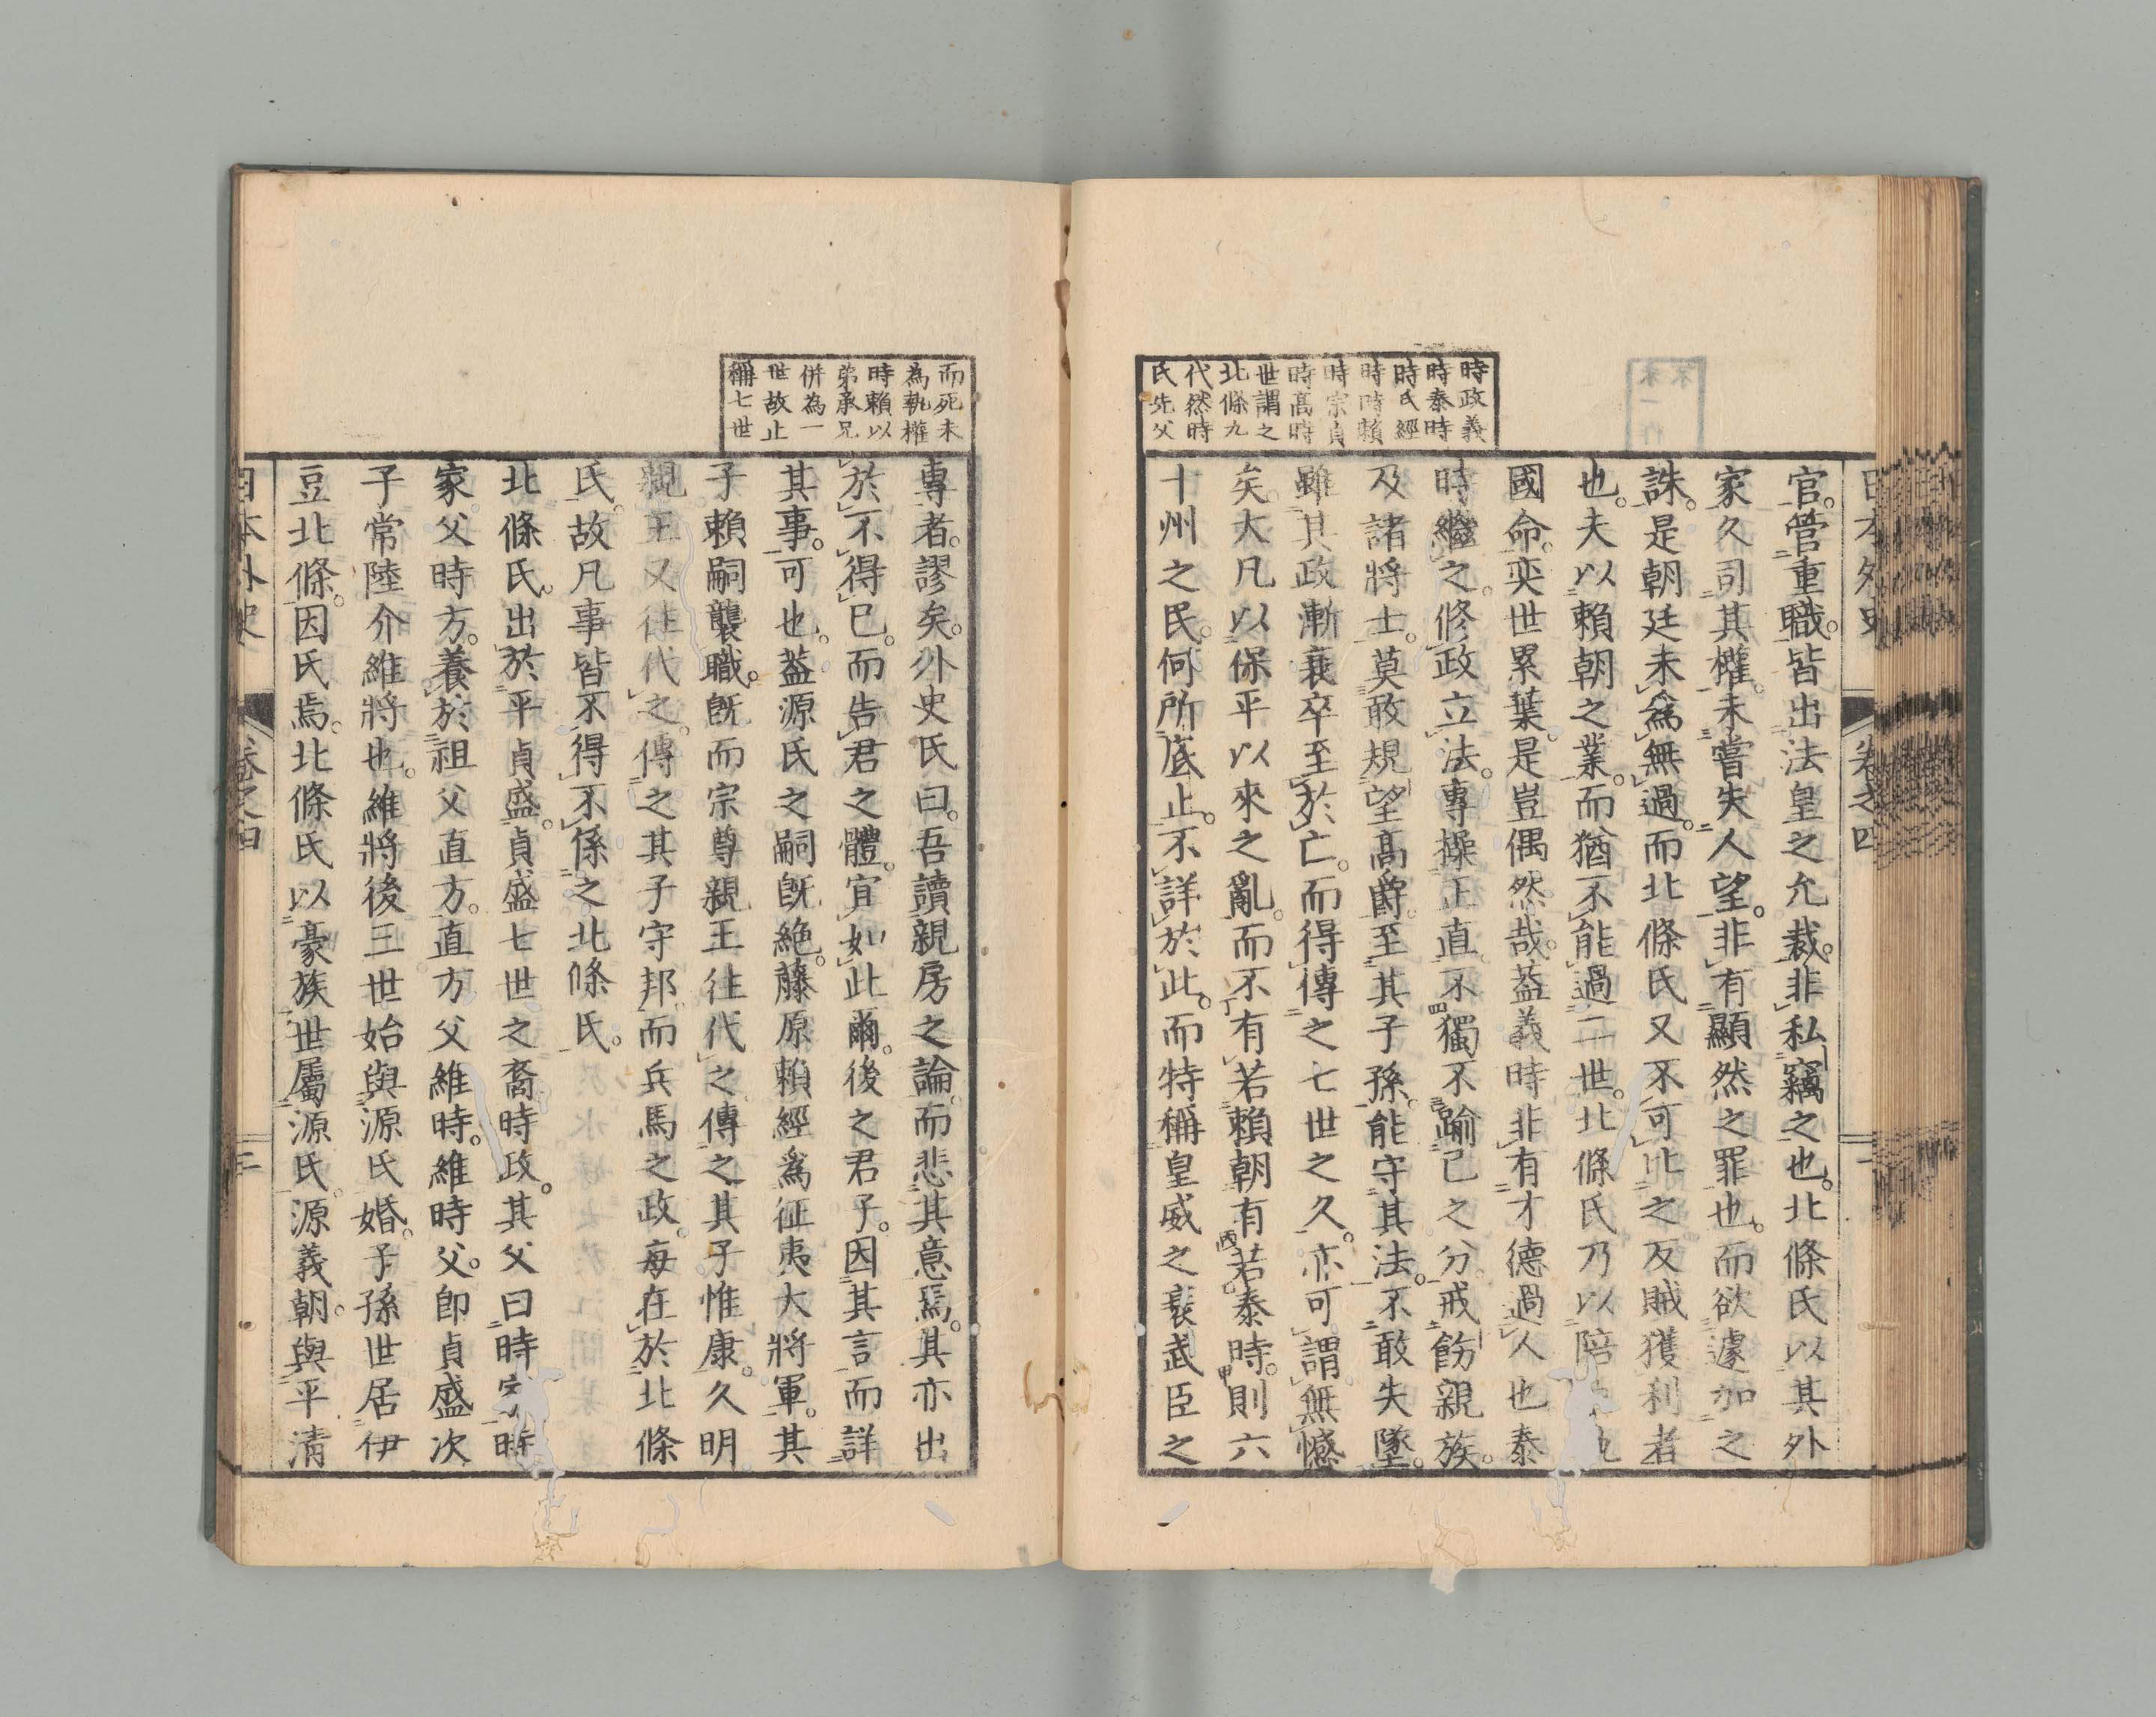 日本外史 卷之四
官。管重職。皆出法皇之允裁。非私竊之也。北條氏以其外
家久司其權。未嘗失人望。非有顯然之罪也。而欲遽加之
誅。是朝廷未爲無過。而北條氏又不可比之反賊獲利者
也。夫以賴朝之業。而猶不能過二世。北條氏乃以陪
國命。奕世累葉。是豈偶然哉。蓋義時非有才德過人也泰
時繼之。修政立法。專操正直。不獨不踰己之分。戒飭親族。
及諸將士。莫敢規望高爵。至其子孫。能守其法。不敢失墜。
雖其政漸衰卒至於亡。而得傳之七世之久。亦可謂無憾
矣。大凡以保平以來之亂。而不有若賴朝有若泰時。則六
十州之民。何所底止。不詳於此。而特稱皇威之衰武臣之
時政義
時泰時
時氏經
時時賴
時宗貞
時高時
世謂之
北條九
代然時
氏先父
專者。謬矣。外史氏曰。吾讀親房之論。而悲其意焉。其亦出
於不得已。而告君之體。宜如此爾。後之君子。因其言而詳
其事。可也。蓋源氏之嗣既絶。藤原賴經爲征夷大將軍。其
子賴嗣襲職。既而宗尊親王往代之。傳之其子惟康。久明
親王又往代之。傳之其子守邦。而兵馬之政。每在於北條
氏。故凡事皆不得不係之北條氏。
北條氏。出於平貞盛。貞盛七世之裔時政。其父曰時家。時
家父時方。養於祖父直方。直方父維時。維時父。即貞盛次
子常陸介維將也。維將後三世始與源氏婚。子孫世居伊
豆北條。因氏焉。北條氏以豪族世屬源氏。源義朝。與平清
而死未
為執權
時賴以
弟承兄
併為一
世故止
稱七世
日本外史 卷之四 三